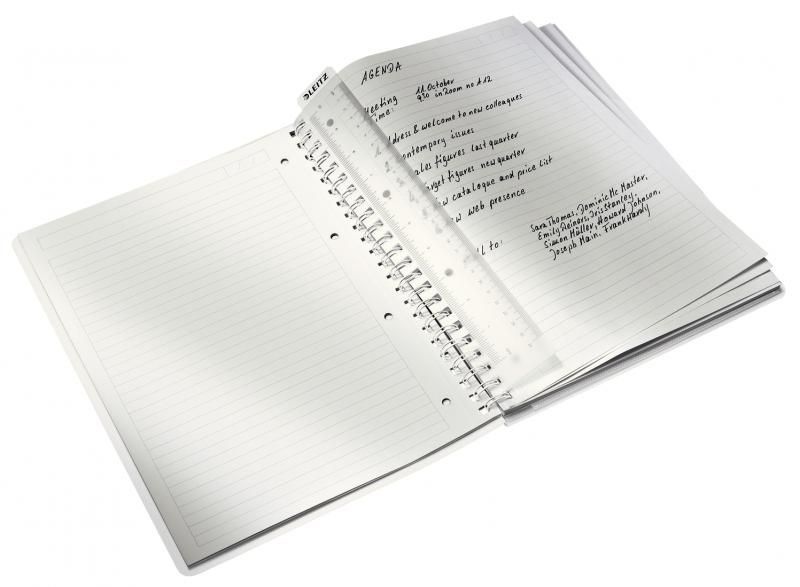 LEITZ
AGENDA
Meeting 11. October
Time: 9.30 in Room no A 12
Address & welcome to new colleagues
Contempory issues
Sales figures last quarter
Target figures new quarter
New catalogue and price list
New web presence
to: Sara Thomas, Dominic Mc Master,
Emily Reiners, Iris Stanley,
Simon Müller, Howard Johnson,
Joseph Main, Frank Hardy